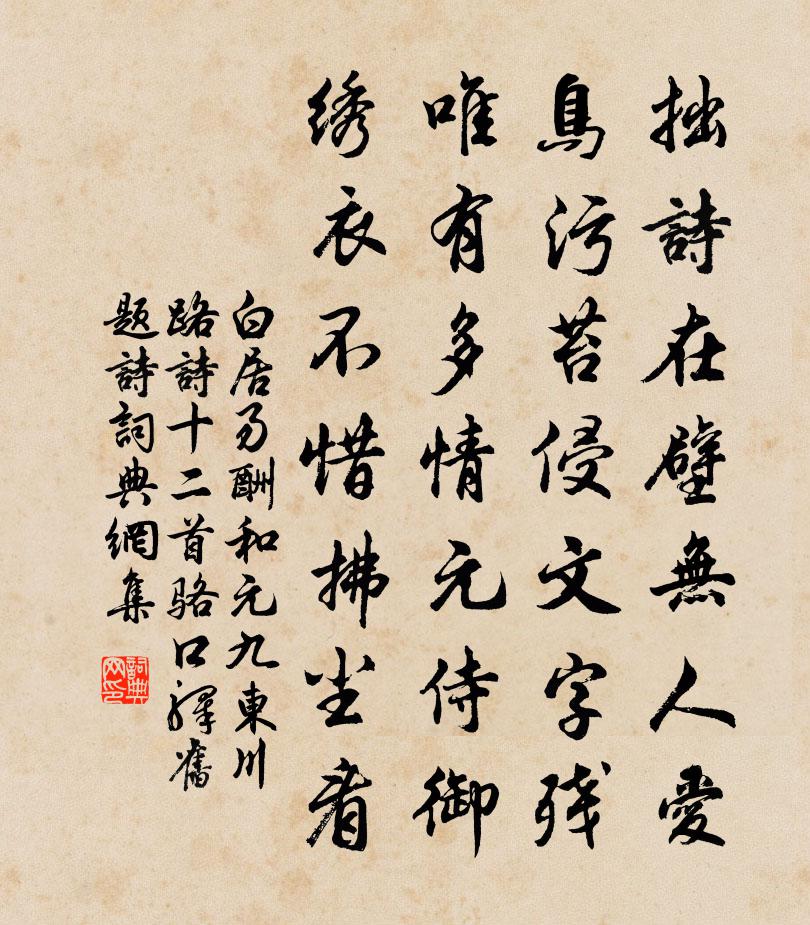 拙詩在壁無人愛
鳥污苔侵文字残
唯有多情元侍御
绣衣不惜拂尘看
白居易酬和元九東川
路詩十二首骆口驛舊
题詩詞典網集
詞典
网印